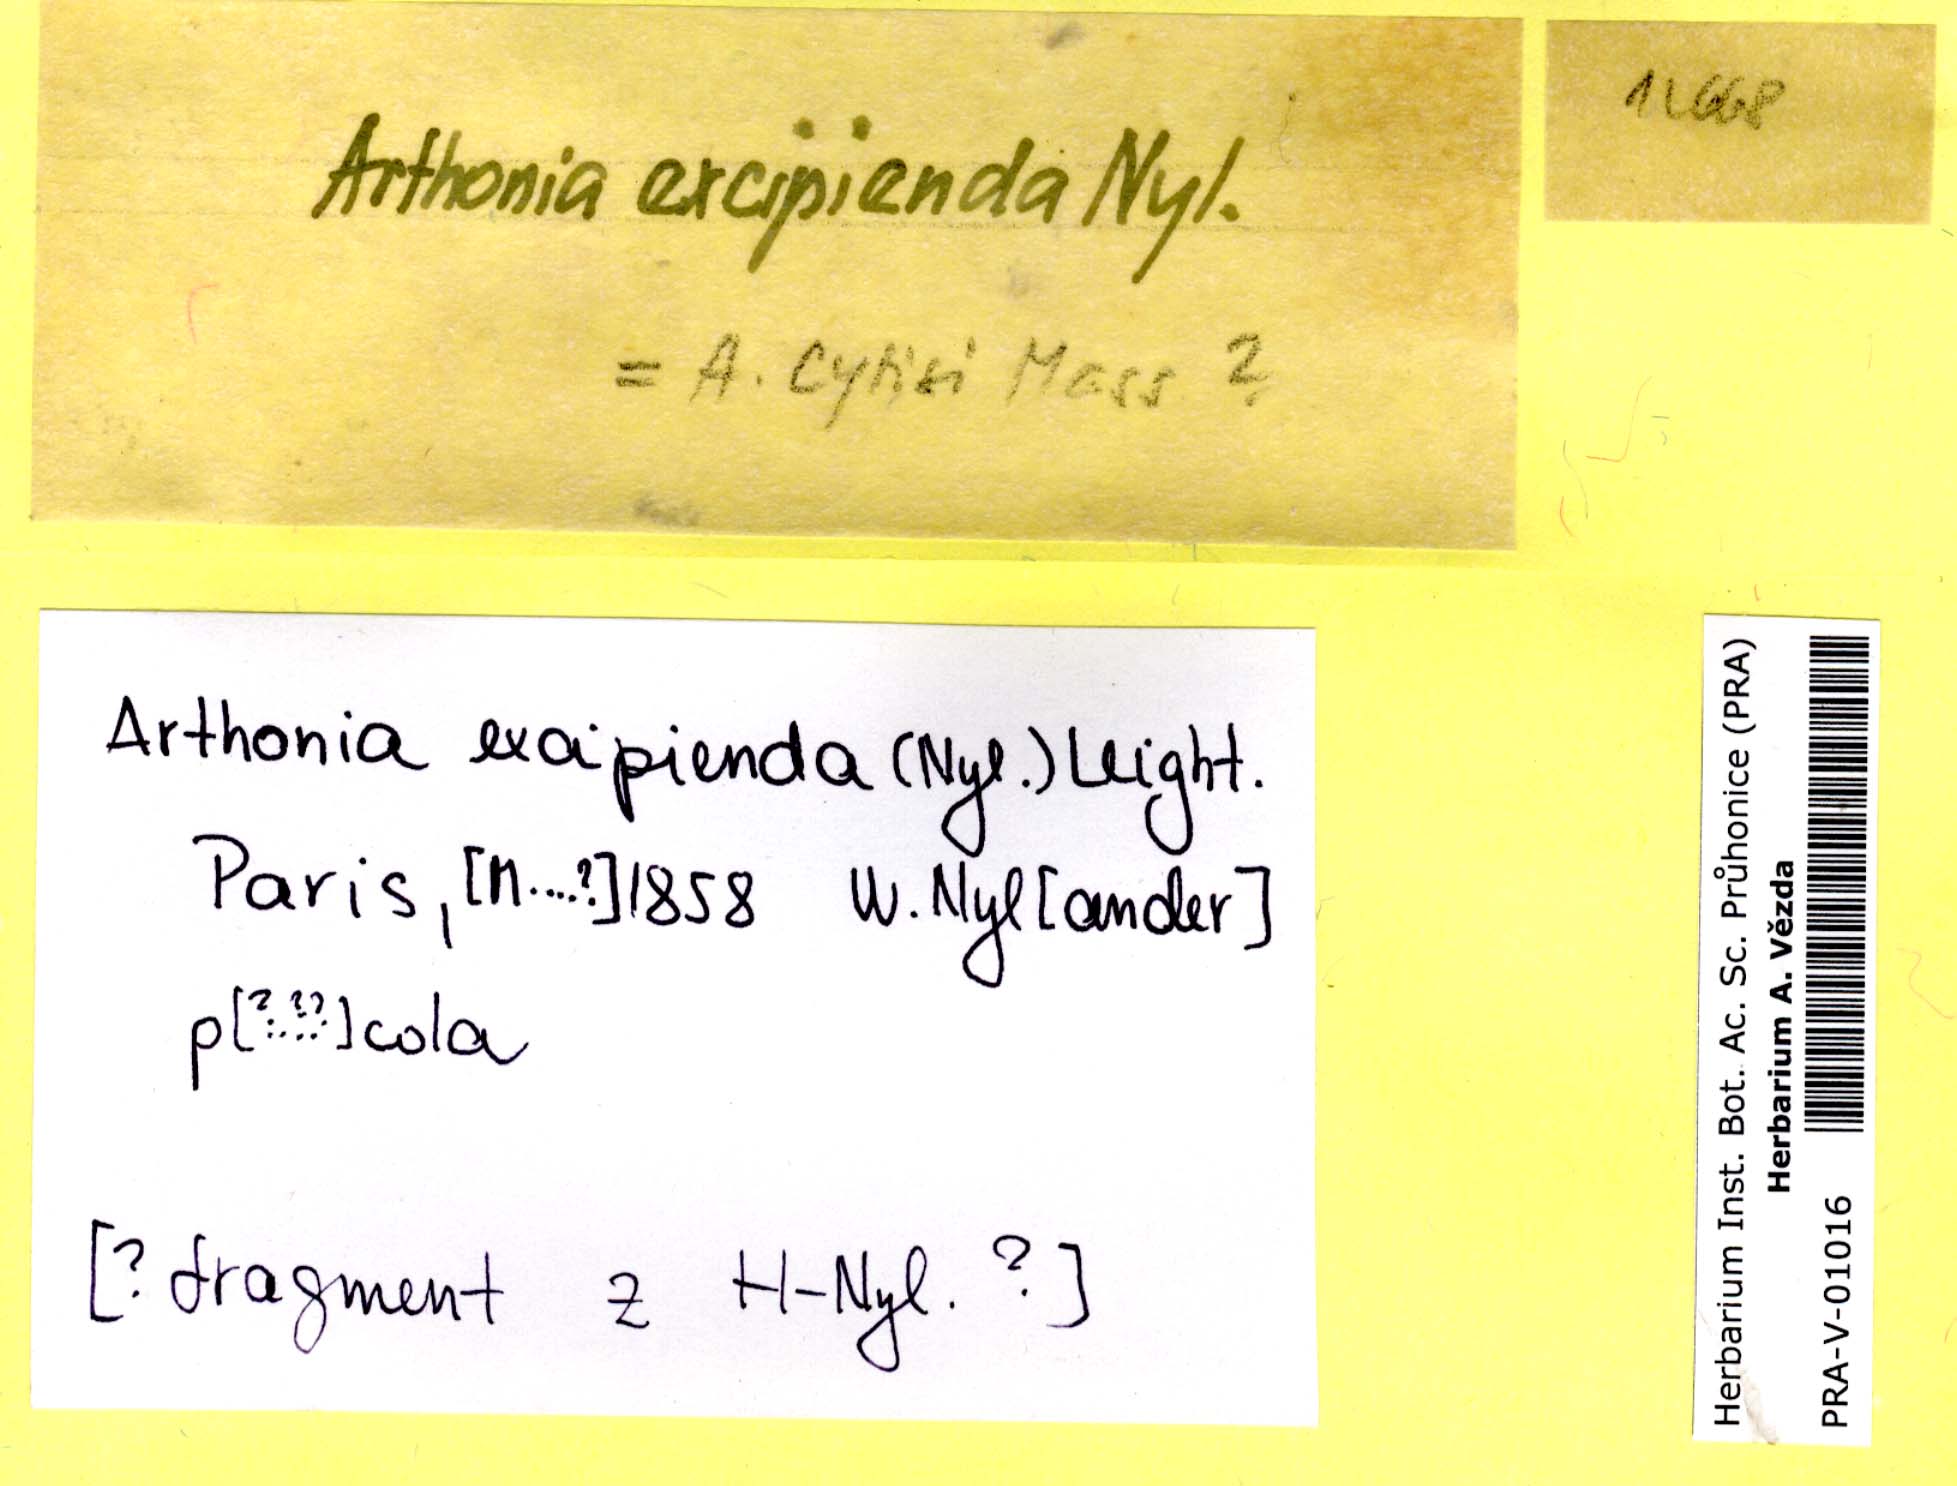 Arthonia excipienda Nyl.
= A. Cytisi Mass ?
Arthonia excipienda (Nyl.) Leight.
Paris, [M...?] 1858 W. Nyl[ander]
p[?.??]cola
[? fragment z H-Nyl. ?]
Herbarium Inst. Bot. Ac. Sc. Průhonice (PRA)
Herbarium A. Vězda
PRA-V-01016